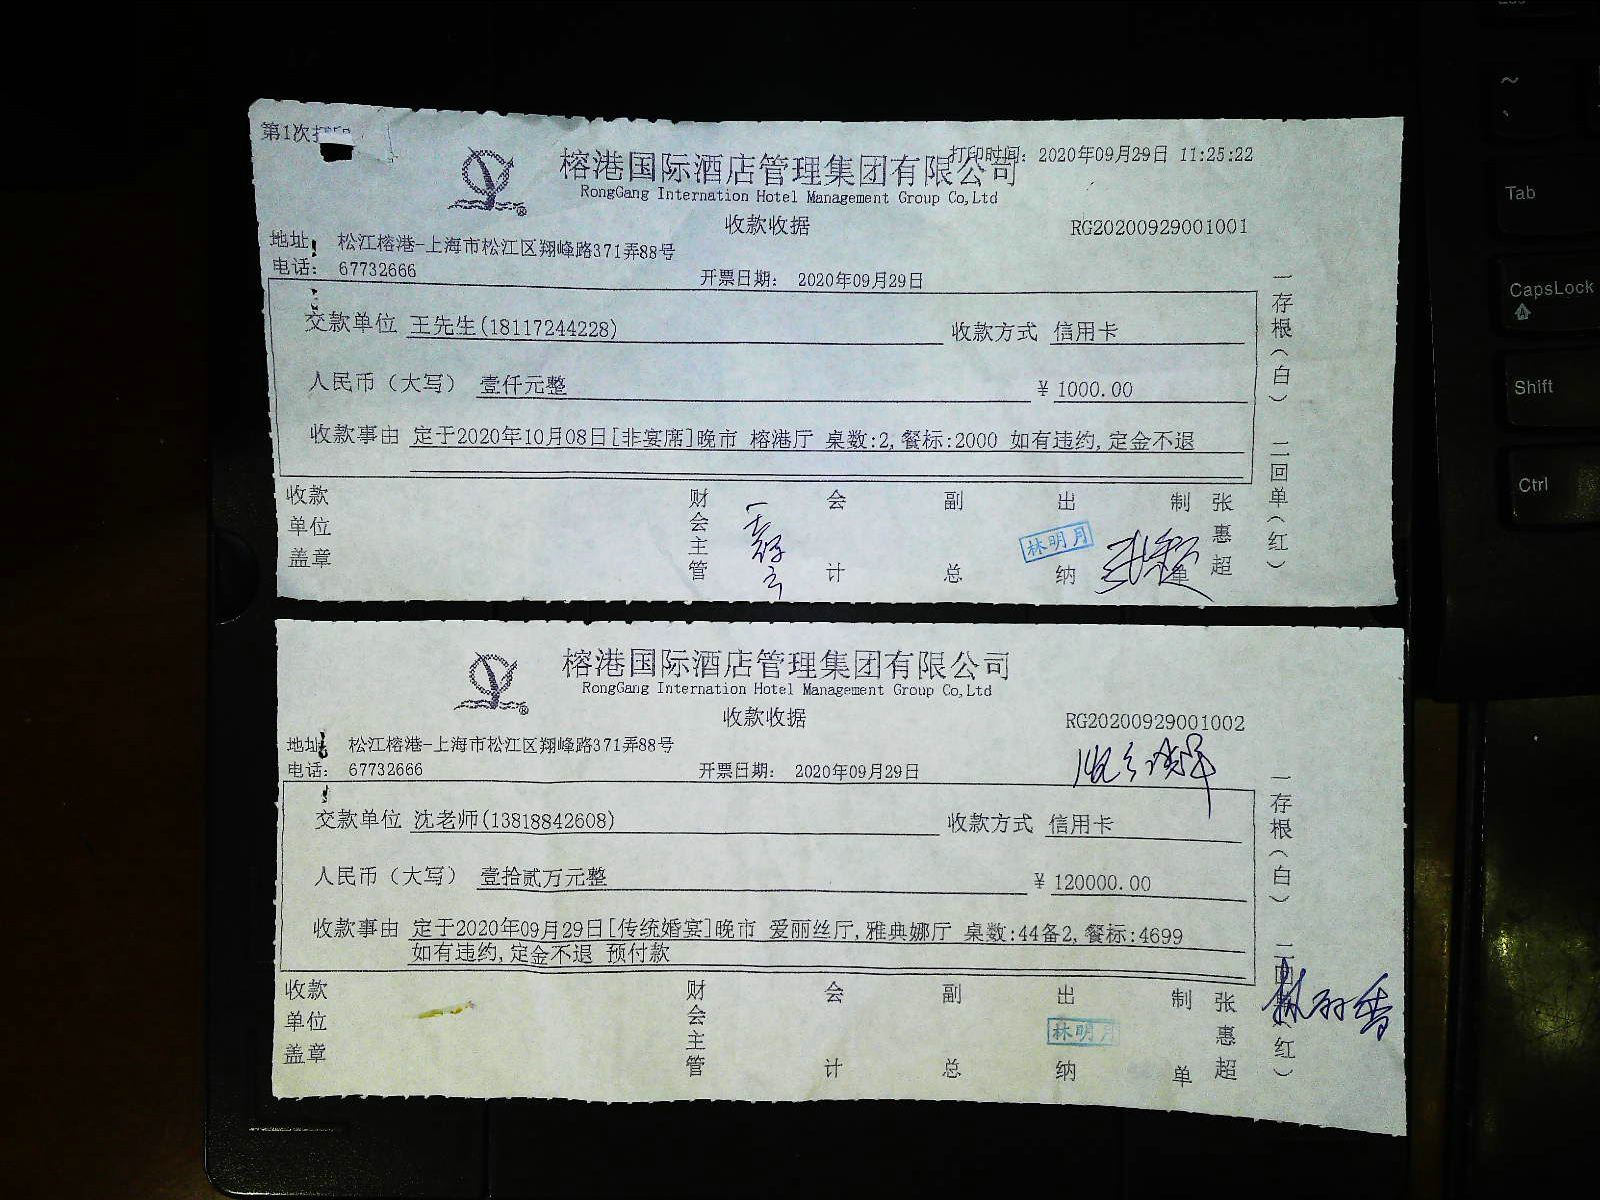 第1次打印
打印时间: 2020年09月29日 11:25:22
榕港国际酒店管理集团有限公司
RongGang Internation Hotel Management Group Co,Ltd
®
收款收据
RG20200929001001
地址: 松江榕港-上海市松江区翔峰路371弄88号
电话: 67732666
开票日期: 2020年09月29日
交款单位 王先生(18117244228) 收款方式 信用卡
人民币(大写) 壹仟元整 ¥ 1000.00
收款事由 定于2020年10月08日[非宴席]晚市 榕港厅 桌数:2,餐标:2000 如有违约,定金不退
一存根(白) 二回单(红)
收款单位盖章 财会主管 会计 副总 出纳 林明月 制单 张惠超
榕港国际酒店管理集团有限公司
RongGang Internation Hotel Management Group Co,Ltd
®
收款收据
RG20200929001002
地址: 松江榕港-上海市松江区翔峰路371弄88号
电话: 67732666
开票日期: 2020年09月29日
交款单位 沈老师(13818842608) 收款方式 信用卡
人民币(大写) 壹拾贰万元整 ¥ 120000.00
收款事由 定于2020年09月29日[传统婚宴]晚市 爱丽丝厅,雅典娜厅 桌数:44备2,餐标:4699
如有违约,定金不退 预付款
一存根(白) 二回单(红)
收款单位盖章 财会主管 会计 副总 出纳 林明月 制单 张惠超
~
Tab
CapsLock
Shift
Ctrl